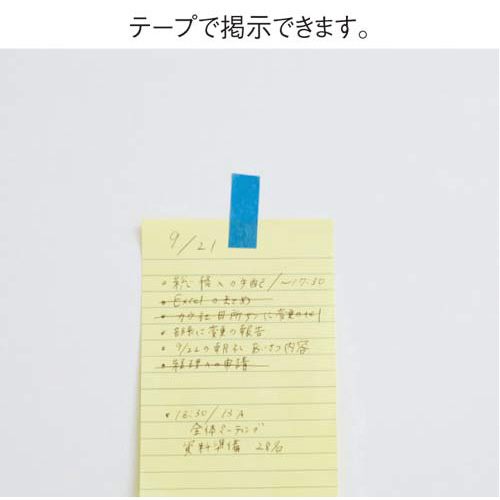 テープで掲示できます。
9/21
• 新人の手配 /〜17:30
• Excelのまとめ
• 部長に変更の報告
• 9/22の朝礼 あいさつ内容
• 経理への申請
• 18:30/13A
全体ミーティング
資料準備 28名